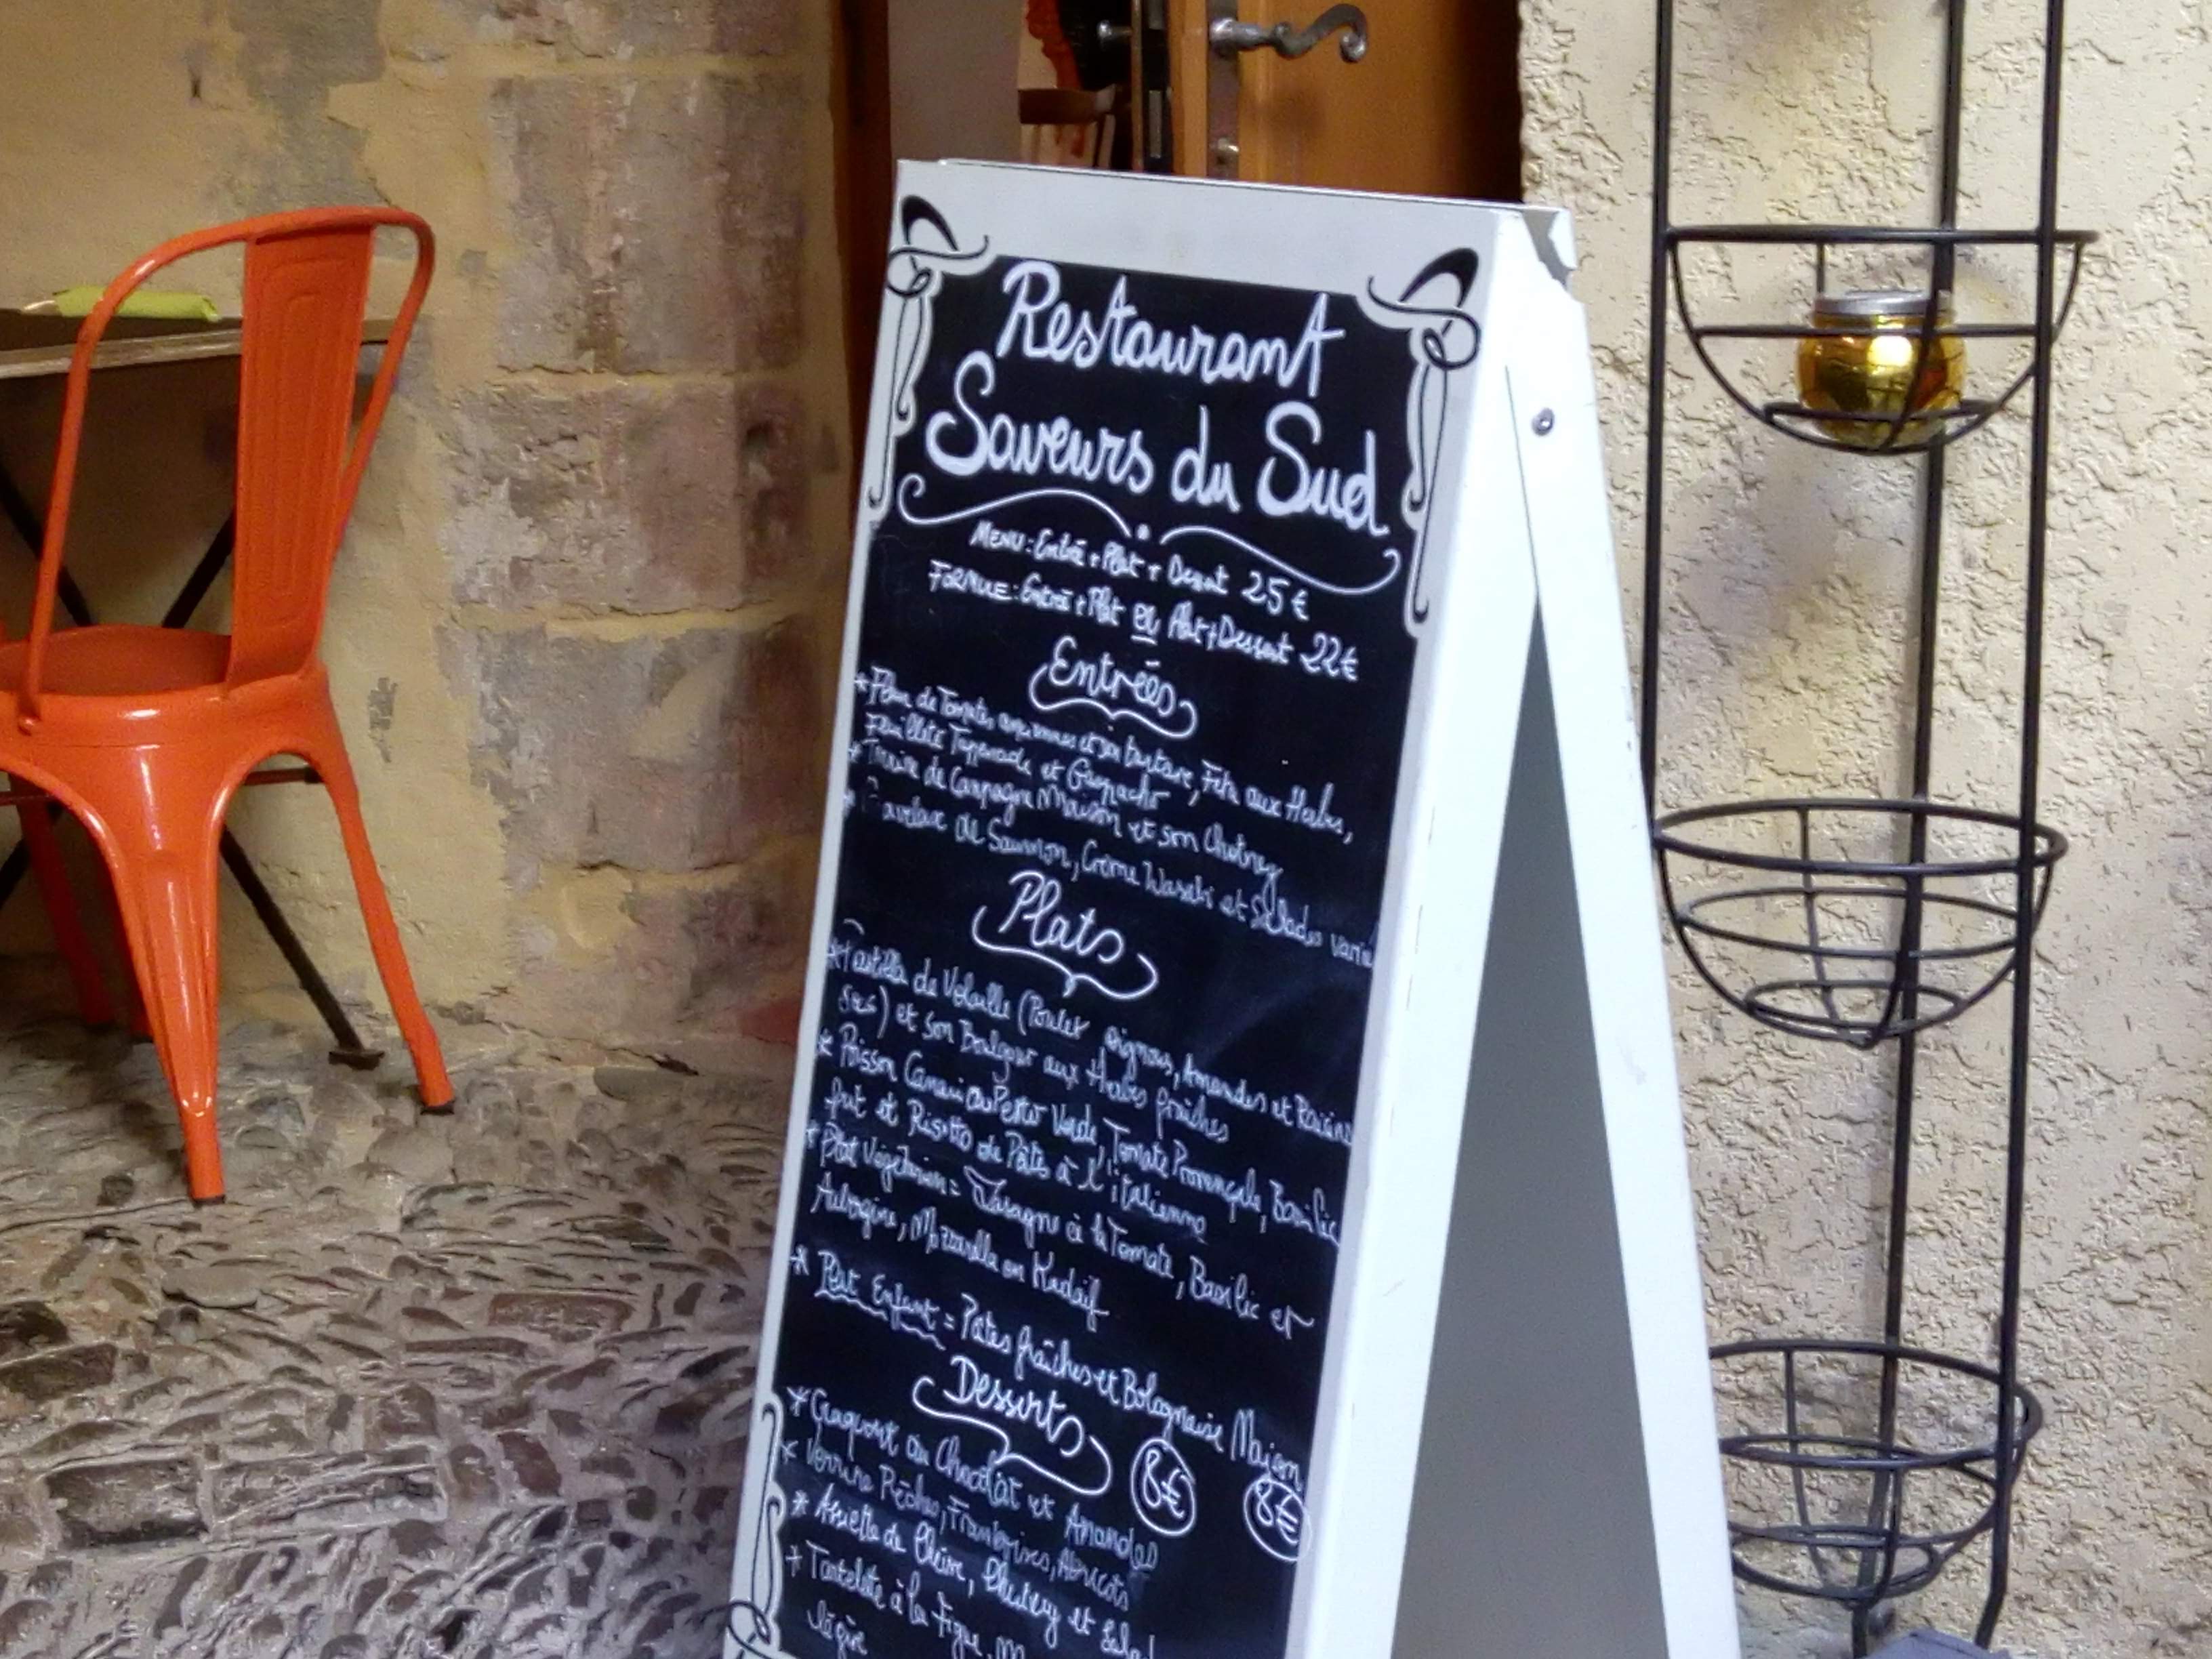 Restaurant
Saveurs du Sud
MENU: Entrée + Plat + Dessert 25€
FORMULE: Entrée + Plat ou Plat + Dessert 22€
Entrées
* de Tomates et son tartare, Féta aux Herbes,
Feuilleté Tappenade et Gaspacho
* Terrine de Campagne Maison et son Chutney
* Gravelax de Saumon, Crème Wasabi et Salades
Plats
* Pastilla de Volaille (Poulet oignons, Amandes et Raisins
) et son Boulgour aux Herbes fraîches
* Poisson Verde, Tomate Provençale, Basilic
frit et Risotto de Pâtes à l'italienne
* Plat Végétarien = Lasagne à la Tomate, Basilic et
Aubergine, Mozzarella en Kadaïf
* Plat Enfant = Pâtes fraîches et Bolognaise Maison 8€
Desserts 8€
* Craquant au Chocolat et Amandes
* Verrine Pêches, Framboises, Abricots
* Assiette de Chèvre, Chutney et
* Tartelette à la Figue,
légère